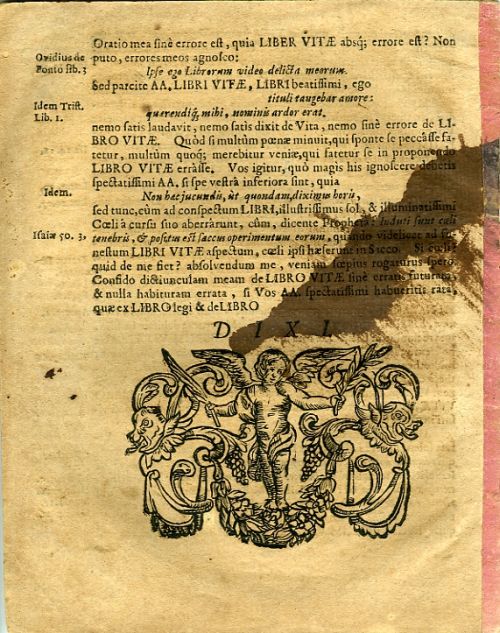 Oratio mea sinè errore est, quia LIBER VITÆ absq; errore est? Non
Ovidius de
Ponto lib. 3
puto, errores meos agnosco:
Ipse ego Librorum video delicta meorum.
Sed parcite AA. LIBRI VITÆ, LIBRI beatissimi, ego
tituli tangebar amore:
Idem Trist.
Lib. 1.
querendiq, mihi, nominis ardor erat.
nemo satis laudavit, nemo satis dixit de Vita, nemo sinè errore de LI-
BRO VITÆ. Quòd si multùm pœnæ minuit, qui sponte se peccâsse fa-
tetur, multùm quoq; merebitur veniæ, qui fatetur se in proponendo
LIBRO VITÆ errâsse. Vos igitur, quò magis his ignoscere debetis
spectatissimi AA. si spe vestrâ inferiora sint, quia
Idem.
Non hæc jucundis, ut quondam, diximus horis,
sed tunc, cùm ad conspectum LIBRI, illustrissimus sol, & illuminatissimi
Cœli à cursu suo aberrârunt, cùm, dicente Prophetâ: Induti sunt cœli
Isaiæ 50. 3.
tenebris, & positus est saccus operimentum eorum, quando videlicet ad
nestum LIBRI VITÆ aspectum, cœli ipsi hæserunt in Sacco. Si cœli?
quid de me fiet? absolvendum me, veniam sœpius rogaturus spero.
Confido dictiunculam meam de LIBRO VITÆ sinè erratis futuram,
& nulla habituram errata, si Vos AA. spectatissimi habueritis rata,
quæ ex LIBRO legi & de LIBRO
DIXI.